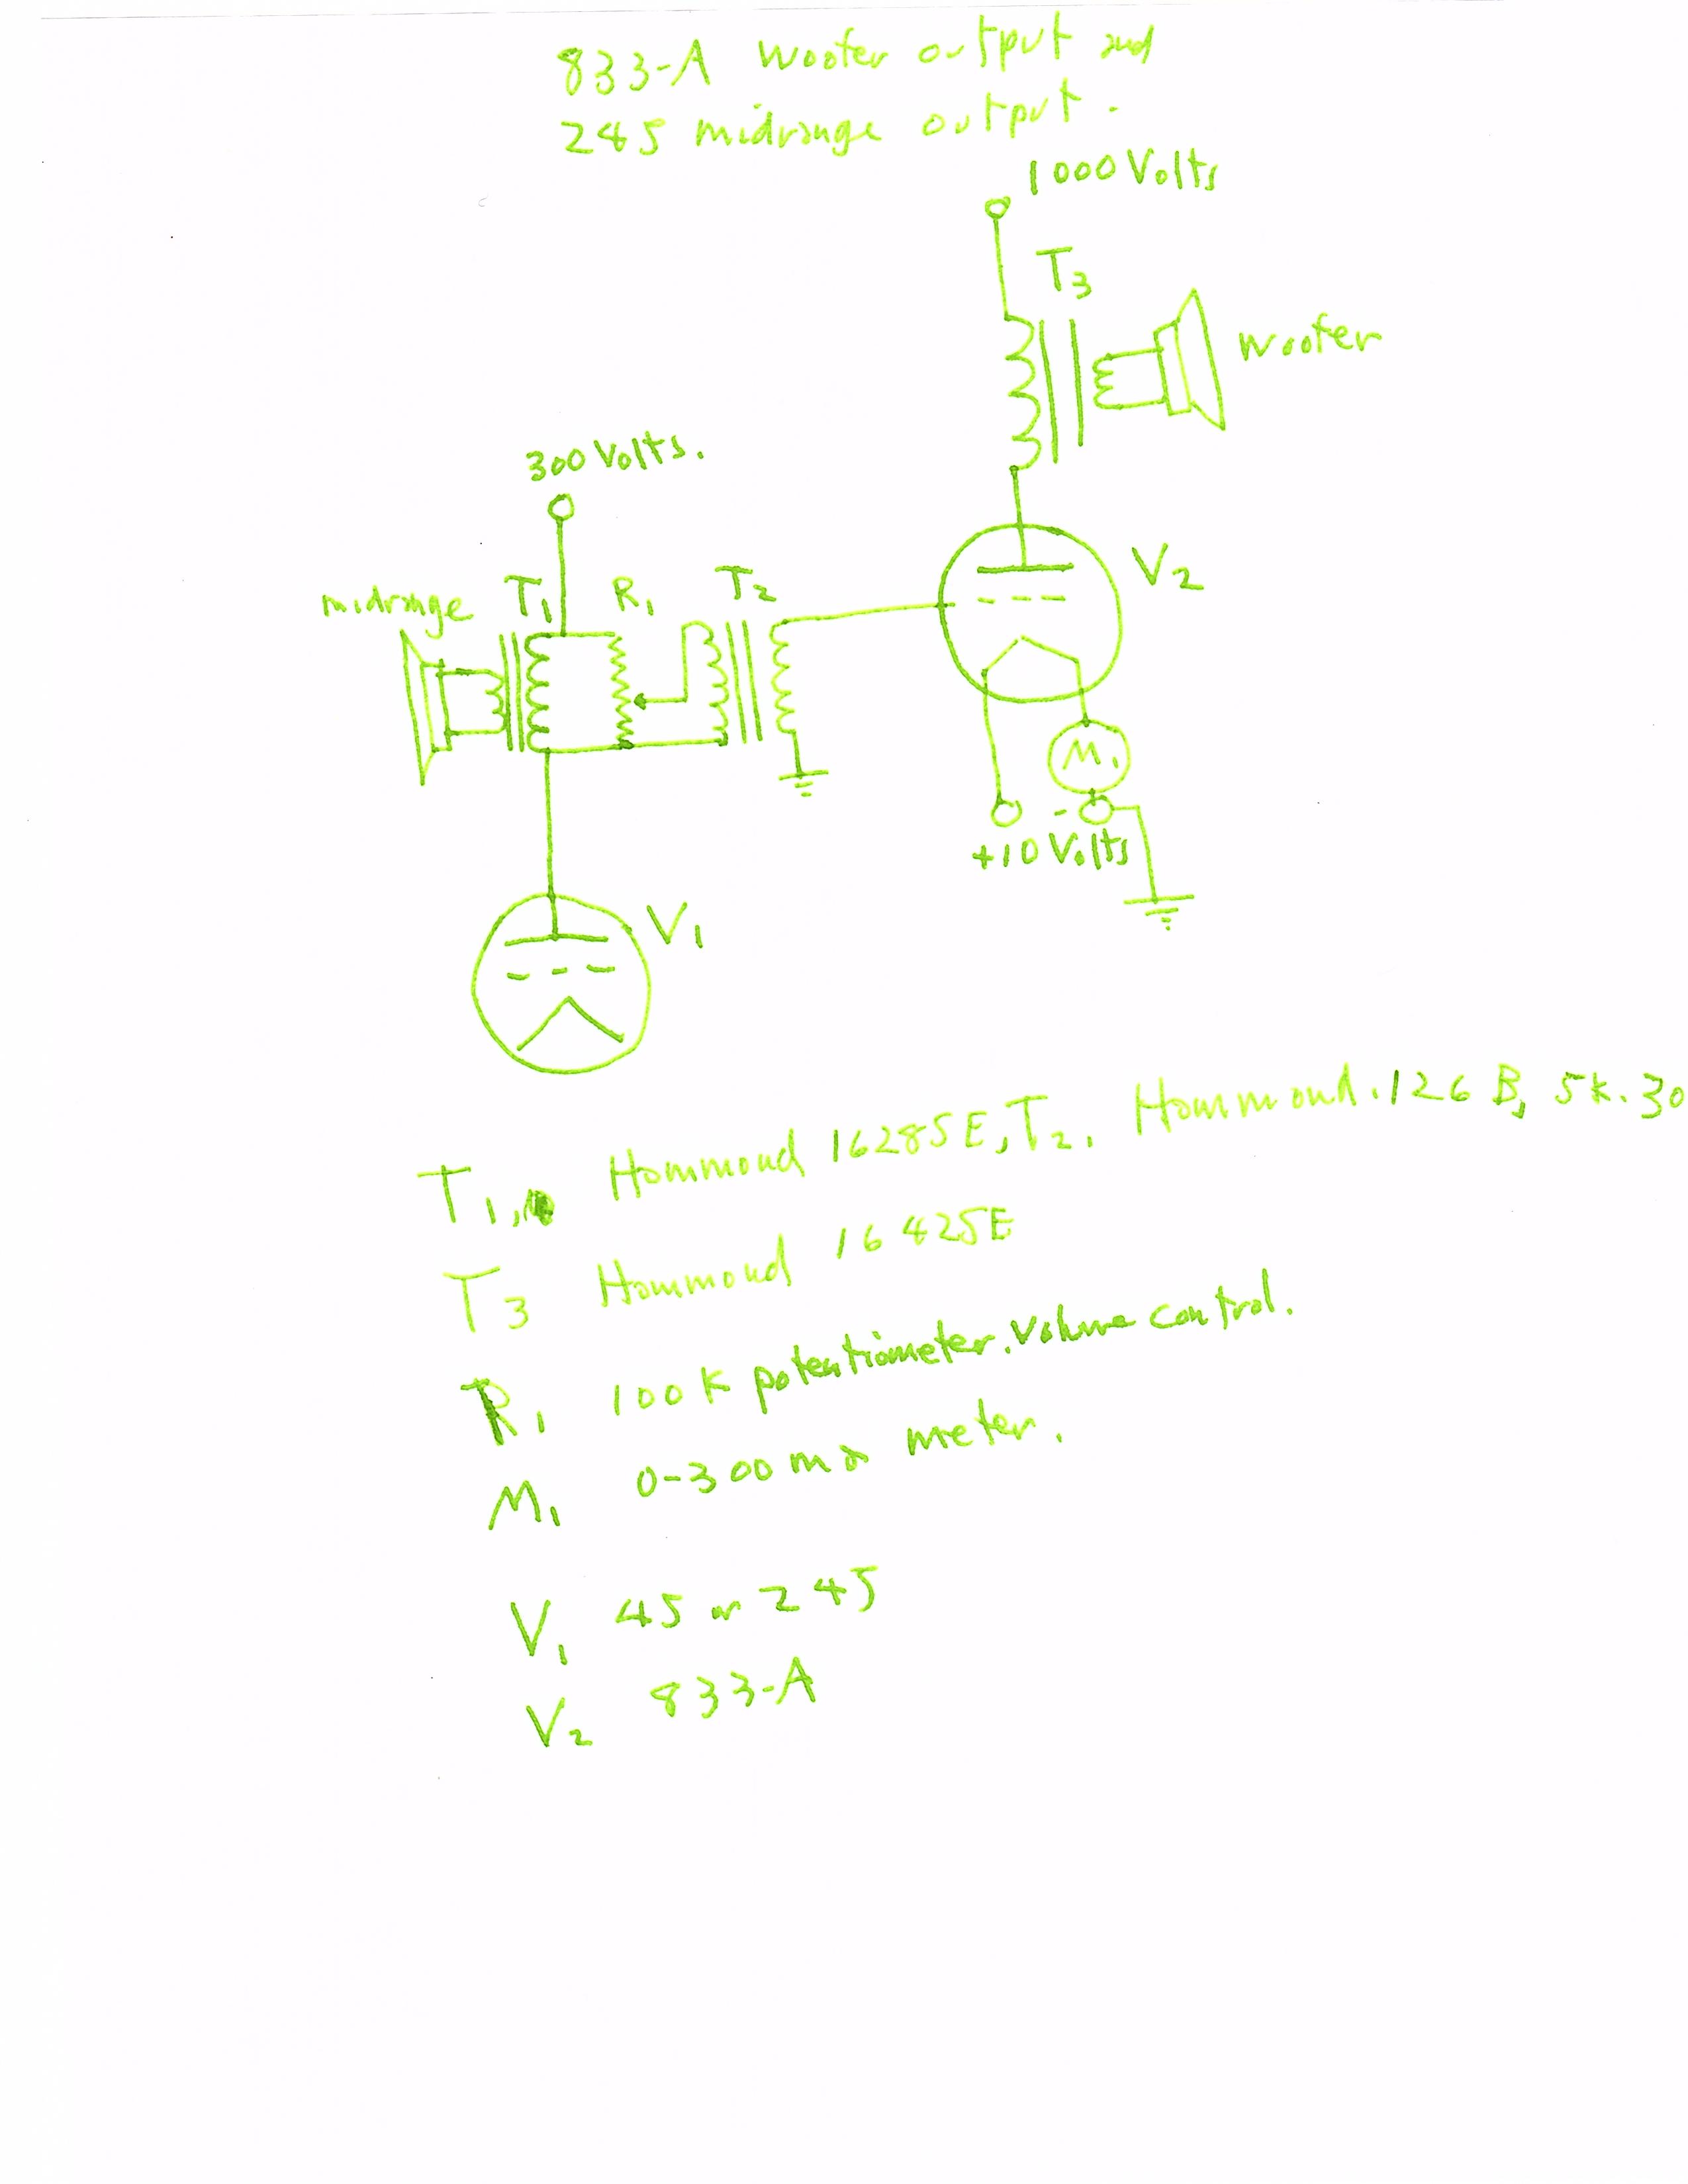 833-A Woofer output and
245 midrange output.
1000 Volts
T3
woofer
300 Volts.
V2
midrange T1 R1 T2
M1
-
+10 Volts
V1
T1, Hammond 1628SE, T2, Hammond. 126 B, 5K. 30
T3 Hammond 1642SE
R1 100K potentiometer. Volume control.
M1 0-300 ma meter.
V1 45 or 245
V2 833-A